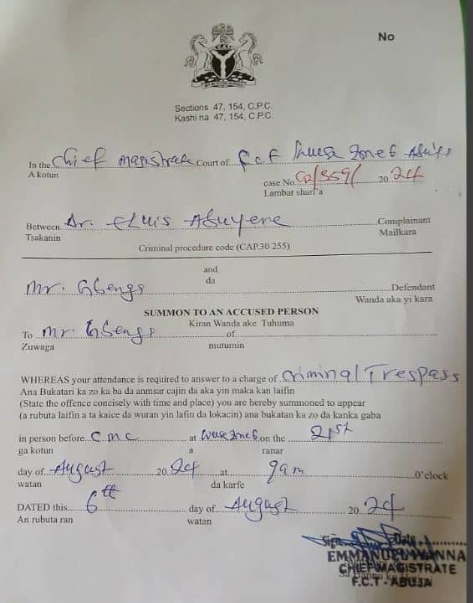 No
Sections 47, 154, C.P.C.
Kashi na 47, 154, C.P.C.
In the Chief magistrate Court of F.C.T Wuse Zone 6 Abuja
A kotun
case No. CR/359/ 2024
Lambar shari'a
Between Dr. Eluis Abuyere Complainant
Tsakanin Maikara
Criminal procedure code (CAP.30 255)
and
da
Mr. Gbenga Defendant
Wanda aka yi kara
SUMMON TO AN ACCUSED PERSON
Kiran Wanda ake Tuhuma
To Mr Gbenga of
Zuwaga mutumin
WHEREAS your attendance is required to answer to a charge of Criminal Trespass
Ana Bukatari ka zo ka ba da anmsar cajin da aka yin maka kan laifin
(State the offence concisely with time and place) you are hereby summoned to appear
(a rubuta laifin a ta kaice da wuran yin lafin da lokacin) ana bukatan ka zo da kanka gaba
in person before CMC at Wuse Zone 6 on the 21st
ga kotun a ranar
day of August 2024 at 9am O'clock
watan da karfe
DATED this 6th day of August 2024
An rubuta ran watan
Sign Date
EMMANUEL IYANNA
CHIEF MAGISTRATE
F.C.T - ABUJA